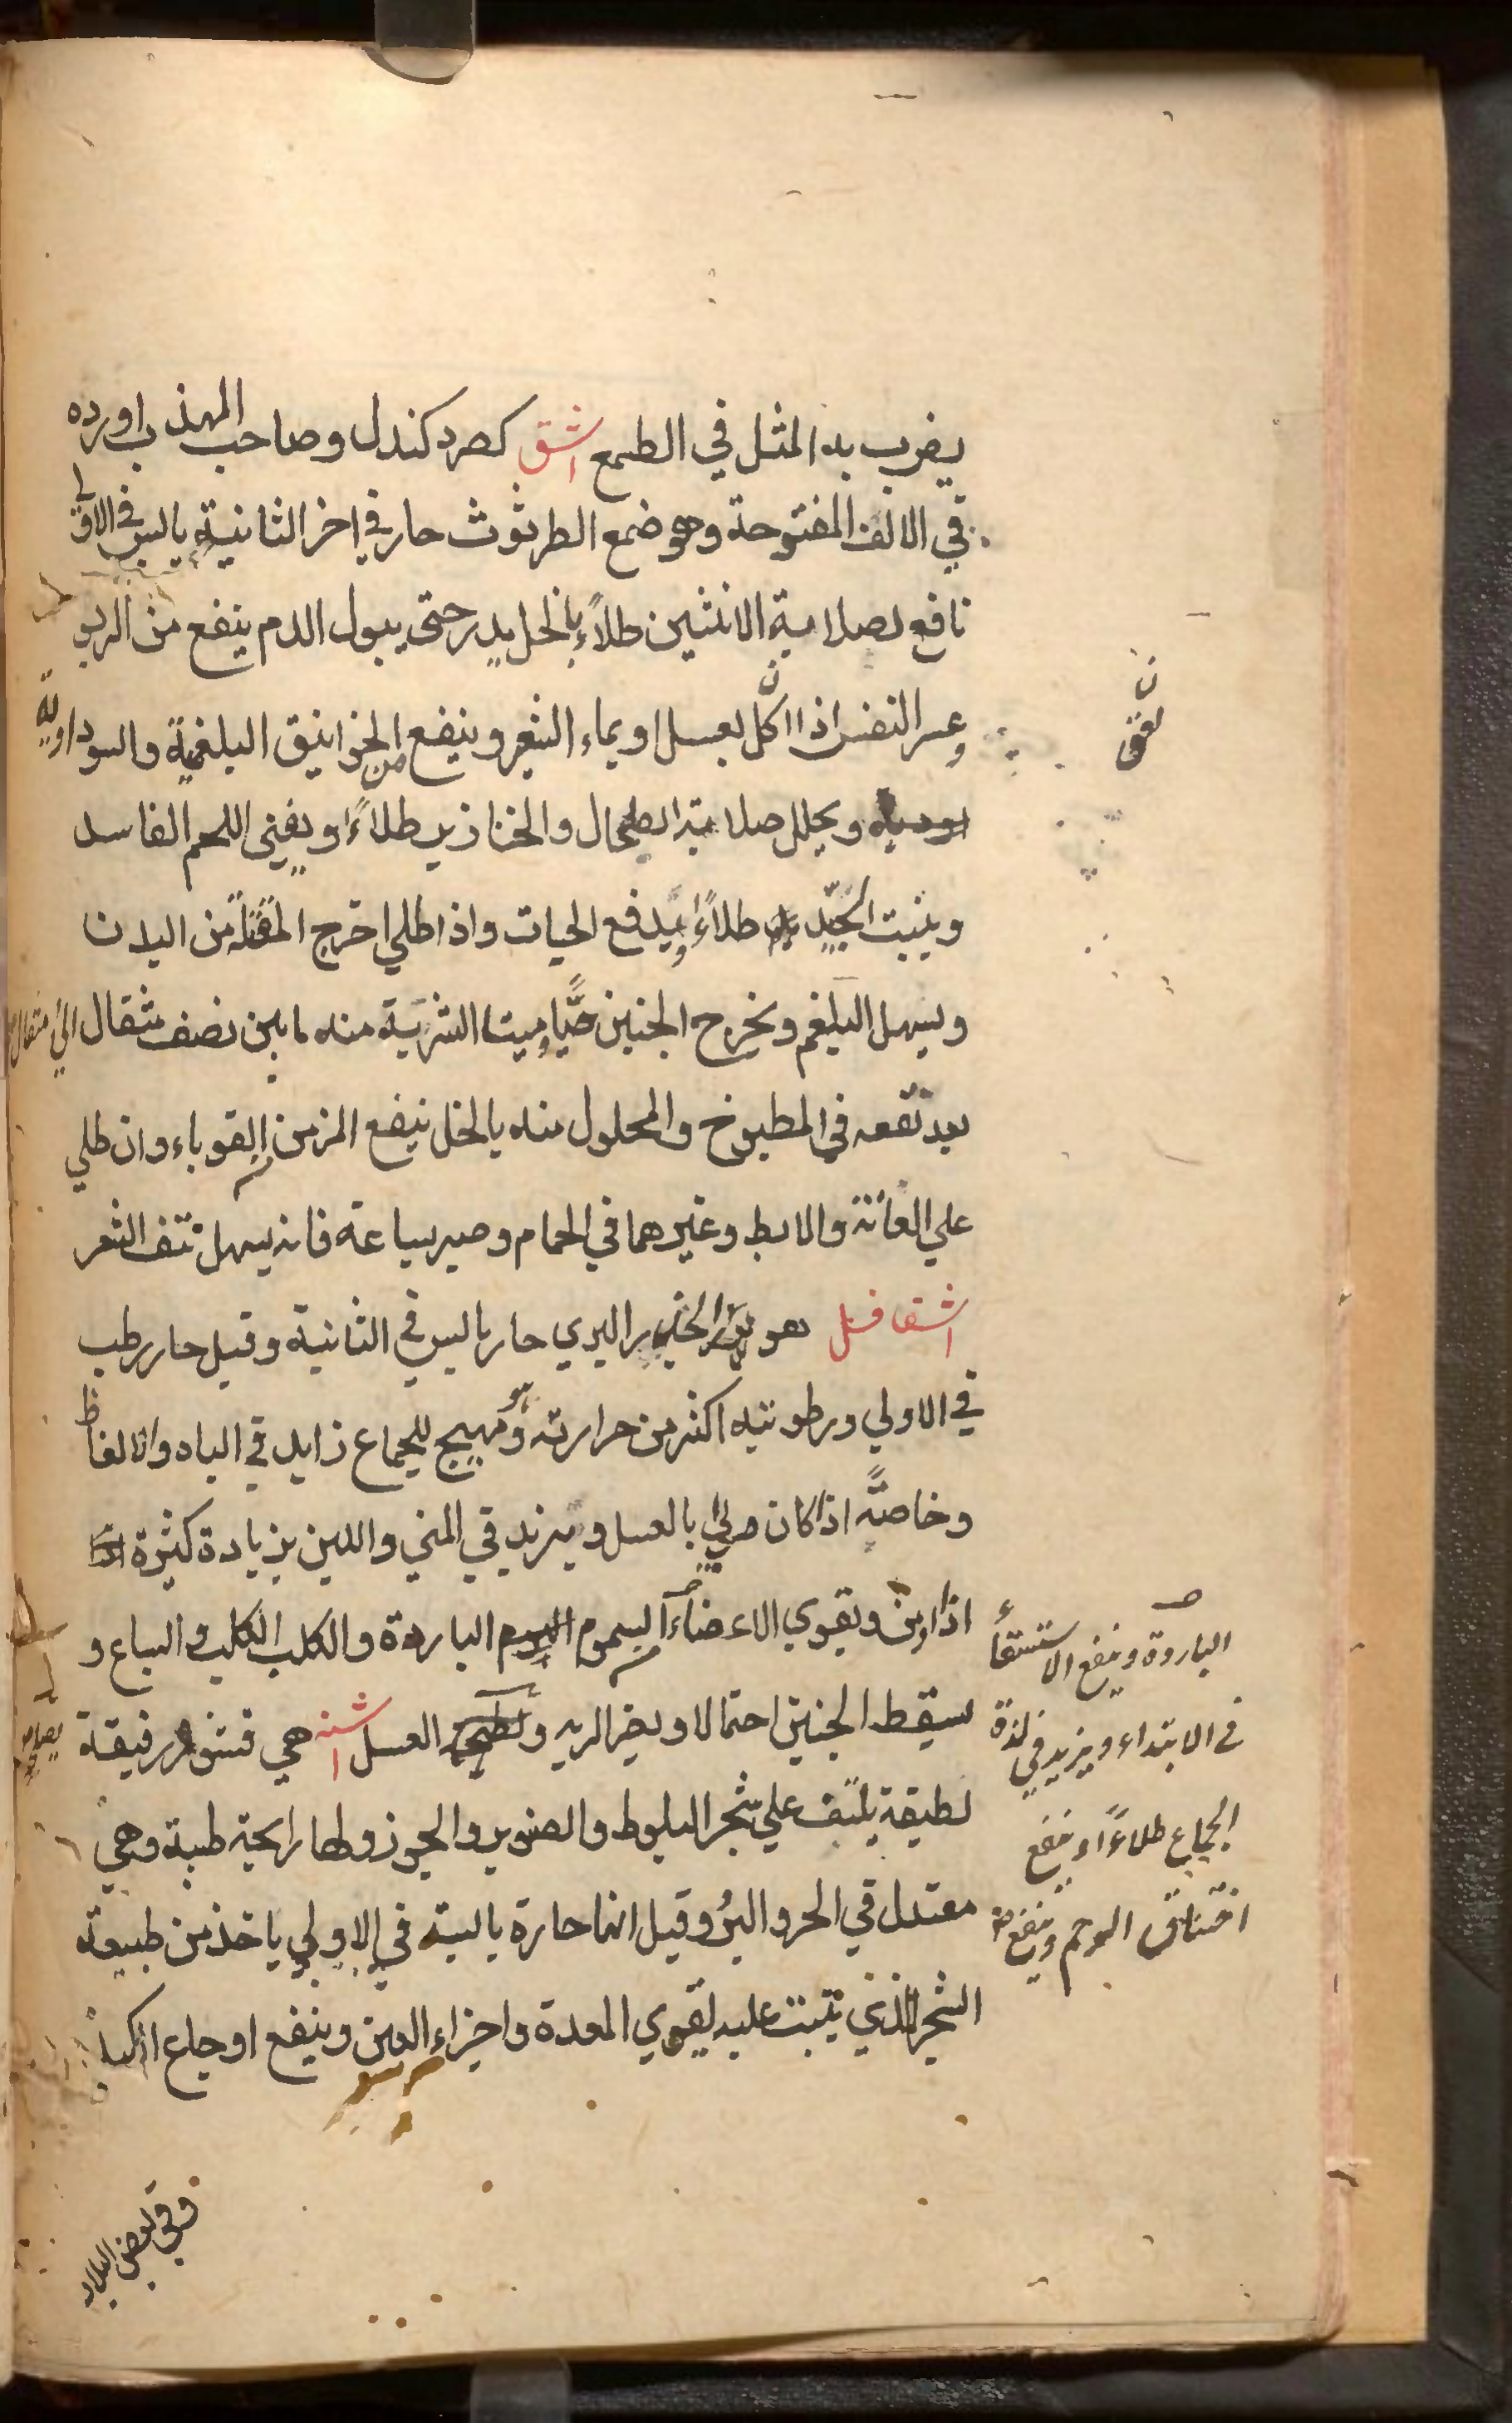 يضرب به المثل في الطمع اشق كصرد كندل وصاحب المهذب اورده
في الالف المفتوحة وهو ضمغ الطرثوث حار في اخر الثانية يابس في الاولى
نافع لصلابة الانثيين طلاءً بالخل يدر حتى يبول الدم ينفع من الربو
وعسر النفس اذا اكل بعسل او بماء الشعير وينفع من الخوانيق البلغمية والسوداوية
ويحلل صلابة الطحال والخنازير طلاءً ويفني اللحم الفاسد
وينبت الجيد طلاءً ويدفع الحيات واذا طلي اخرج من البدن
ويسهل البلغم ويخرج الجنين حيًّا وميتا الشربة منه مابين نصف مثقال الي مثقال
بعد نقعه في المطبوخ والمحلول منه بالخل ينفع المزمن القوباء وان طلي
علي العانة والابط وغيرهما في الحمام وصبر ساعة فانه يسهل نتف الشعر
اشقاقل هو الجزر البري حار يابس في الثانية وقيل حار رطب
في الاولي ورطوبته اكثر من حرارته وهو مهيج للجماع زايد في الباه والانعاظ
وخاصةً اذا كان مربي بالعسل ويزيد في المني واللبن زيادة كثيرة
اذا ويقوي الاعضاء السموم الباردة والكلب الكلب والسباع و
يسقط الجنين احتمالا ويضر الريه و العسل اشنه هي قشور رقيقة
لطيفة يلتف علي شجر البلوط والصنوبر والجوز ولها رايحة طيبة وهي
معتدل في الحر والبرد وقيل انها حارة يابسة في الاولي ياخذ من طبيعة
الشجر الذي تنبت عليه يقوي المعدة واجزاء العين وينفع اوجاع الكبد
الباردة وينفع الاستسقاء
في الابتداء ويزيد في لذة
الجماع طلاءً وينفع
اختناق الرحم وينفع
وفي بعض البلاد